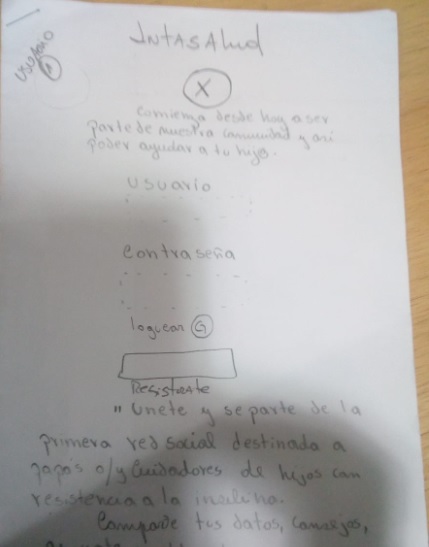 usuario
IntaSalud
X
Comienza desde hoy a ser
parte de nuestra comunidad y asi
poder ayudar a tu hijo.
usuario
Contraseña
loguear G
Registrate
" Unete y se parte de la
primera red social destinada a
papás o/y Cuidadores de hijos con
resistencia a la insulina.
Comparte tus datos, consejos,